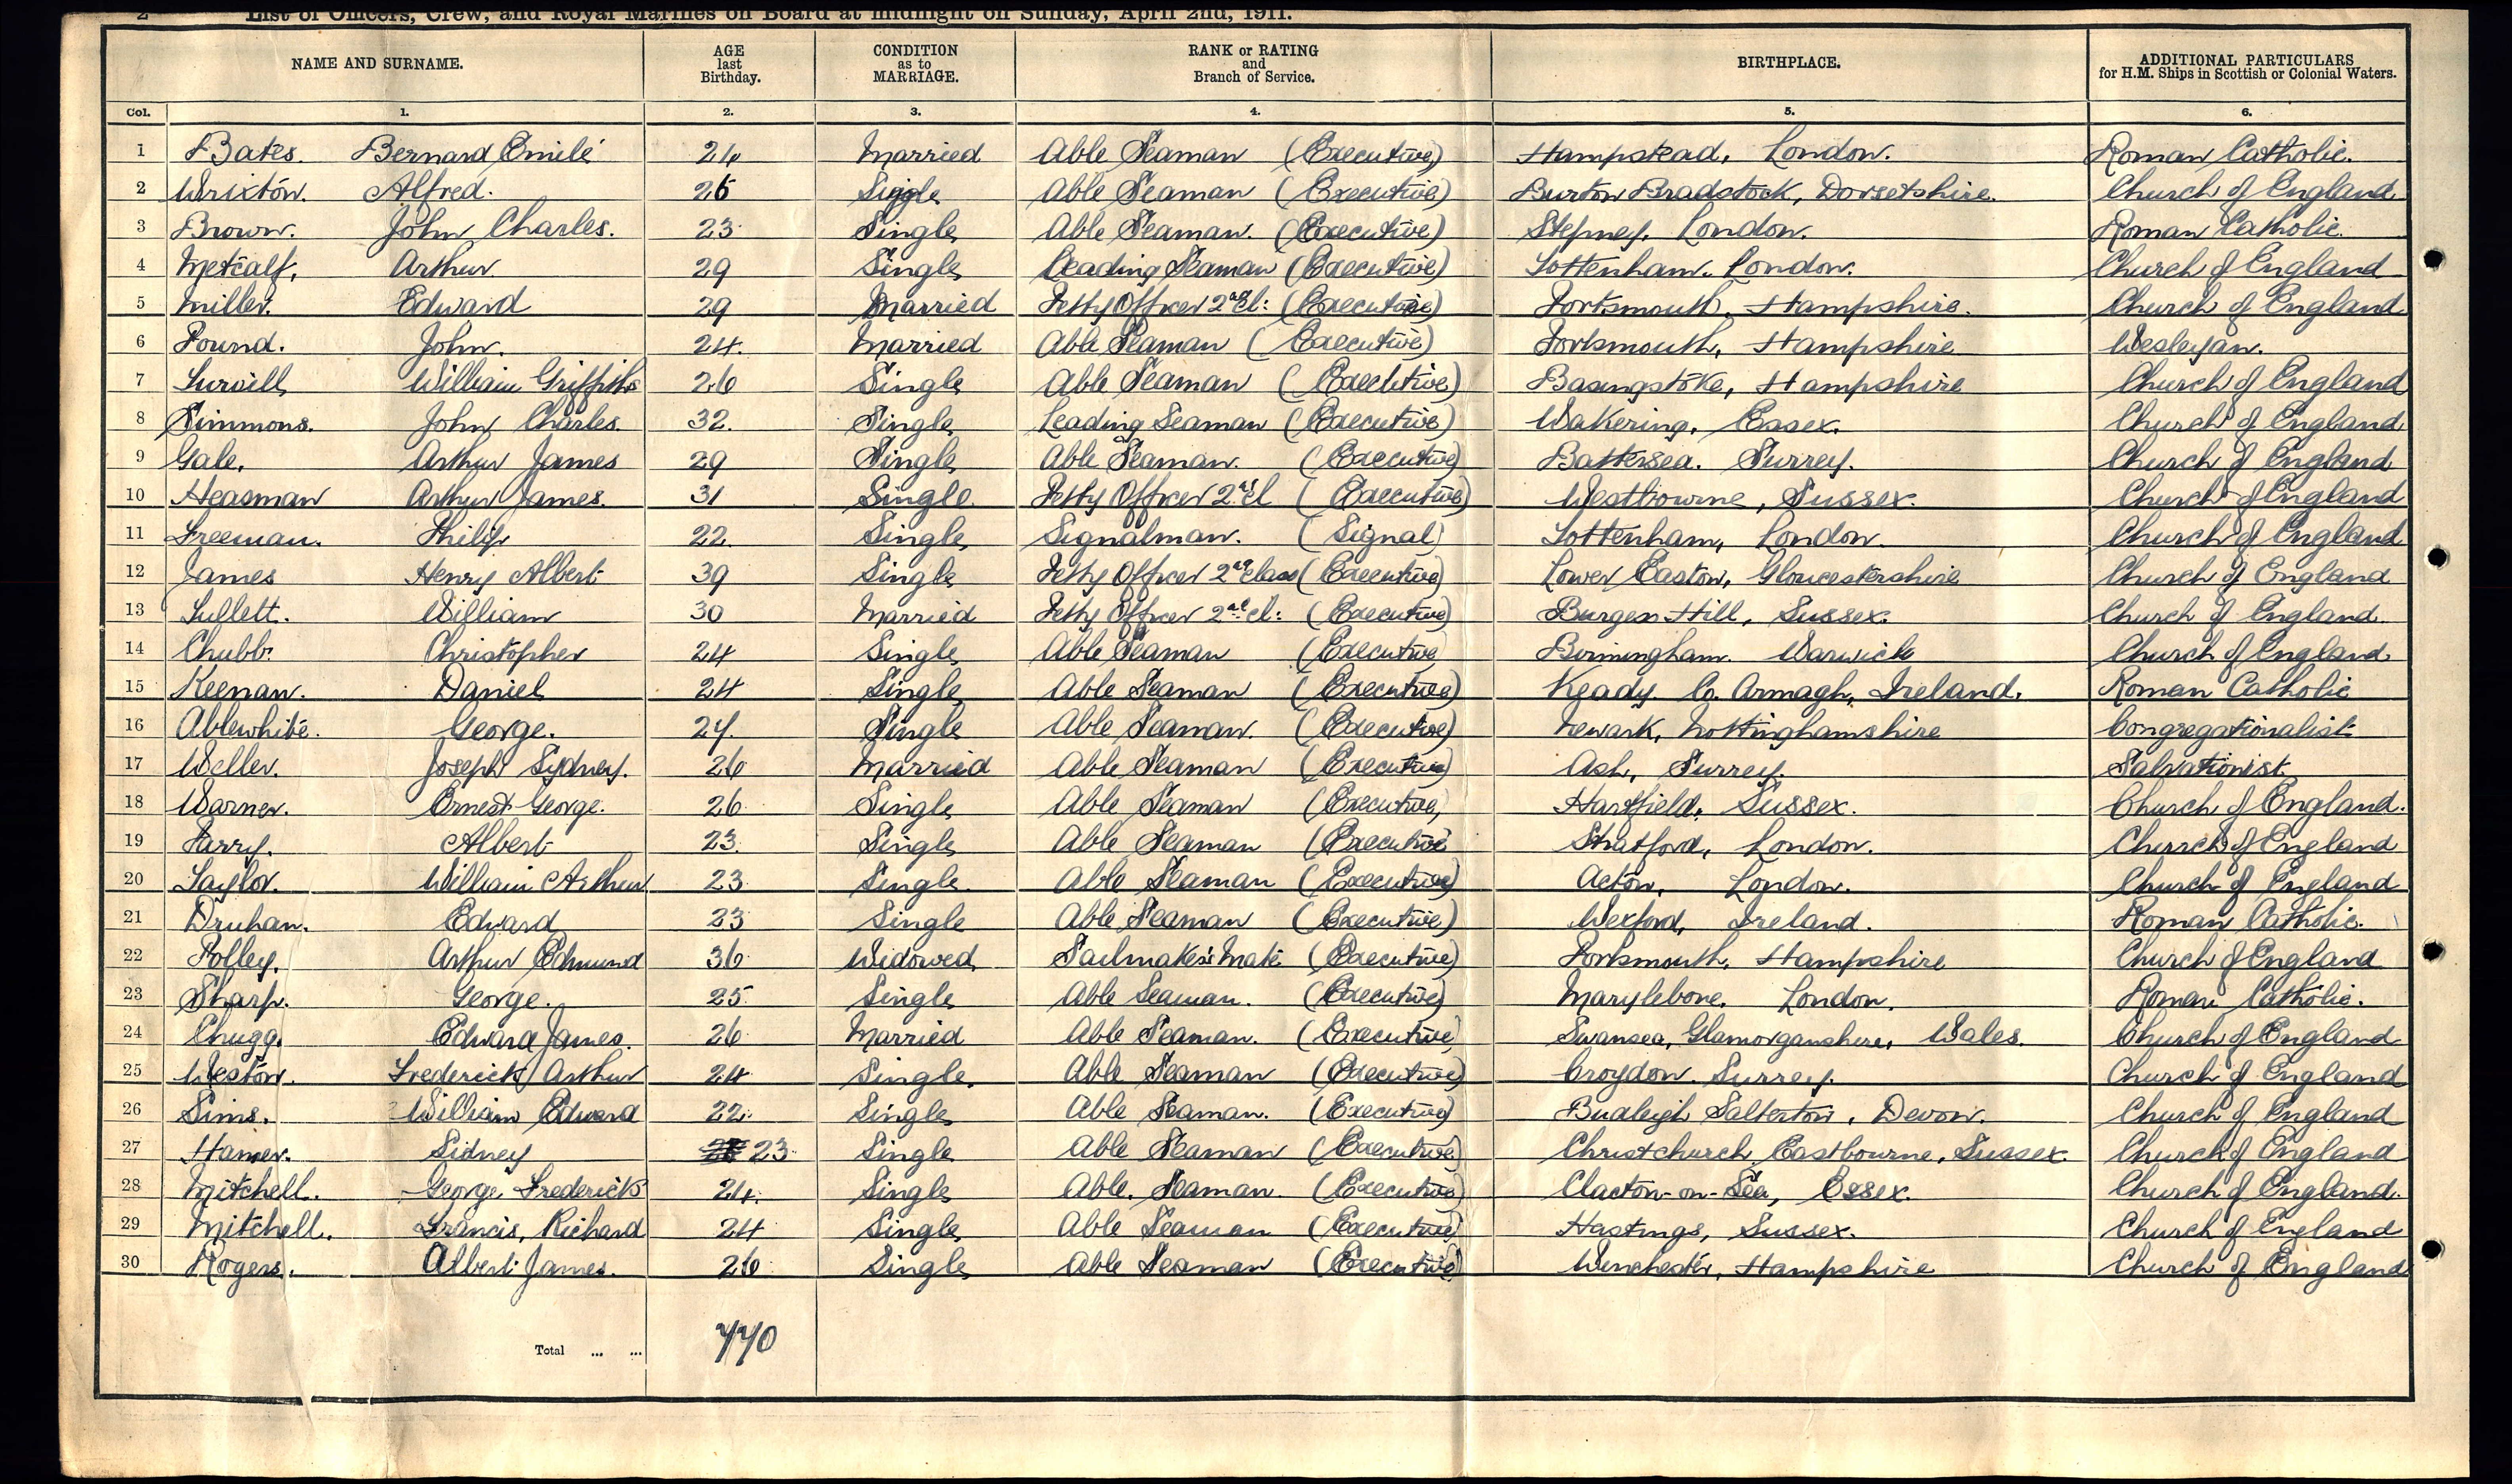 2 List of Officers, Crew, and Royal Marines on Board at midnight on Sunday, April 2nd, 1911.
NAME AND SURNAME. AGE last Birthday. CONDITION as to MARRIAGE. RANK or RATING and Branch of Service. BIRTHPLACE. ADDITIONAL PARTICULARS for H.M. Ships in Scottish or Colonial Waters.
Col. 1. 2. 3. 4. 5. 6.
1 Bates. Bernard Emile 26 Married Able Seaman (Executive) Hampstead, London. Roman Catholic.
2 Wrixton. Alfred. 25 Single Able Seaman (Executive) Burton Bradstock, Dorsetshire. Church of England
3 Brown. John Charles. 23 Single Able Seaman. (Executive) Stepney, London. Roman Catholic.
4 Metcalf, Arthur 29 Single Leading Seaman (Executive) Tottenham. London. Church of England
5 Miller. Edward 29 Married Petty Officer 2nd Cl: (Executive) Portsmouth, Hampshire. Church of England
6 Pound. John. 24. Married Able Seaman (Executive) Portsmouth, Hampshire Wesleyan.
7 William Griffiths 26 Single Able Seaman (Executive) Basingstoke, Hampshire Church of England
8 Simmons. John Charles. 32. Single Leading Seaman (Executive) Wakering, Essex. Church of England
9 Gale. Arthur James 29 Single Able Seaman. (Executive) Battersea. Surrey. Church of England
10 Heasman Arthur James. 31 Single Petty Officer 2nd Cl (Executive) Westbourne, Sussex. Church of England
11 Freeman. Philip 22 Single Signalman. (Signal) Tottenham, London. Church of England
12 James Henry Albert 39 Single Petty Officer 2nd Class (Executive) Lower Easton, Gloucestershire Church of England
13 William 30 Married Petty Officer 2nd cl: (Executive) Burgess Hill, Sussex. Church of England.
14 Chubb. Christopher 24 Single Able Seaman (Executive Birmingham. Warwick Church of England
15 Keenan. Daniel 24 Single Able Seaman (Executive) Keady. Co. Armagh, Ireland. Roman Catholic
16 Ablewhite. George. Single Able Seaman. (Executive) Newark, Nottinghamshire Congregationalist
17 Weller. Joseph Sydney. 26 Married Able Seaman (Executive) Ash, Surrey. Salvationist
18 Warner. Ernest George. 26 Single Able Seaman (Executive) Hartfield, Sussex. Church of England.
19 Parry. Albert 23. Single Able Seaman (Executive Stratford, London. Church of England
20 Taylor. William Arthur 23 Single Able Seaman (Executive) Acton, London. Church of England
21 Druhan. Edward 23 Single Able Seaman (Executive) Wexford, Ireland. Roman Catholic.
22 Polley. Arthur Edmund 36 Widowed Sailmaker's Mate (Executive) Portsmouth, Hampshire Church of England
23 Sharp. George. 25 Single Able Seaman. (Executive) Marylebone. London. Roman Catholic.
24 Chugg. Edward James. 26 Married Able Seaman. (Executive) Swansea, Glamorganshire, Wales. Church of England
25 Weston. Frederick Arthur 24 Single. Able Seaman (Executive) Croydon. Surrey. Church of England
26 Sims. William Edward 22 Single Able Seaman. (Executive) Budleigh Salterton, Devon. Church of England
27 Hamer. Sidney 23 Single Able Seaman (Executive) Christchurch Eastbourne, Sussex. Church of England
28 Mitchell. George Frederick 24. Single Able. Seaman. (Executive) Clacton-on-Sea, Essex. Church of England.
29 Mitchell. Francis, Richard 24 Single Able Seaman (Executive) Hastings, Sussex. Church of England
30 Rogers. Albert James. 26 Single Able Seaman (Executive) Winchester, Hampshire Church of England
Total ... ...